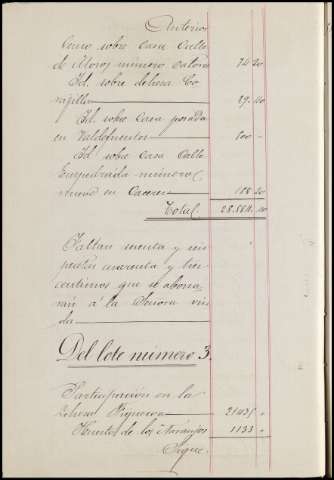 Anterior
Censo sobre Casa Calle
de Moros número catorce 74 20
Id. sobre dehesa Co
rapilla 29. 40
Id. sobre Casa posada
en Valdefuentes 800 -
Id. sobre Casa Calle
Empedrada número
nueve en Caceres 188 20
Total. 28.
Faltan
pesetas cuarenta y tres
centimos que se abona
rán á la Señora viu
da
Del lote número 3.
Participación en la
Dehesa Figueroa
Huertos de los Naranjos 1133
Sigue.